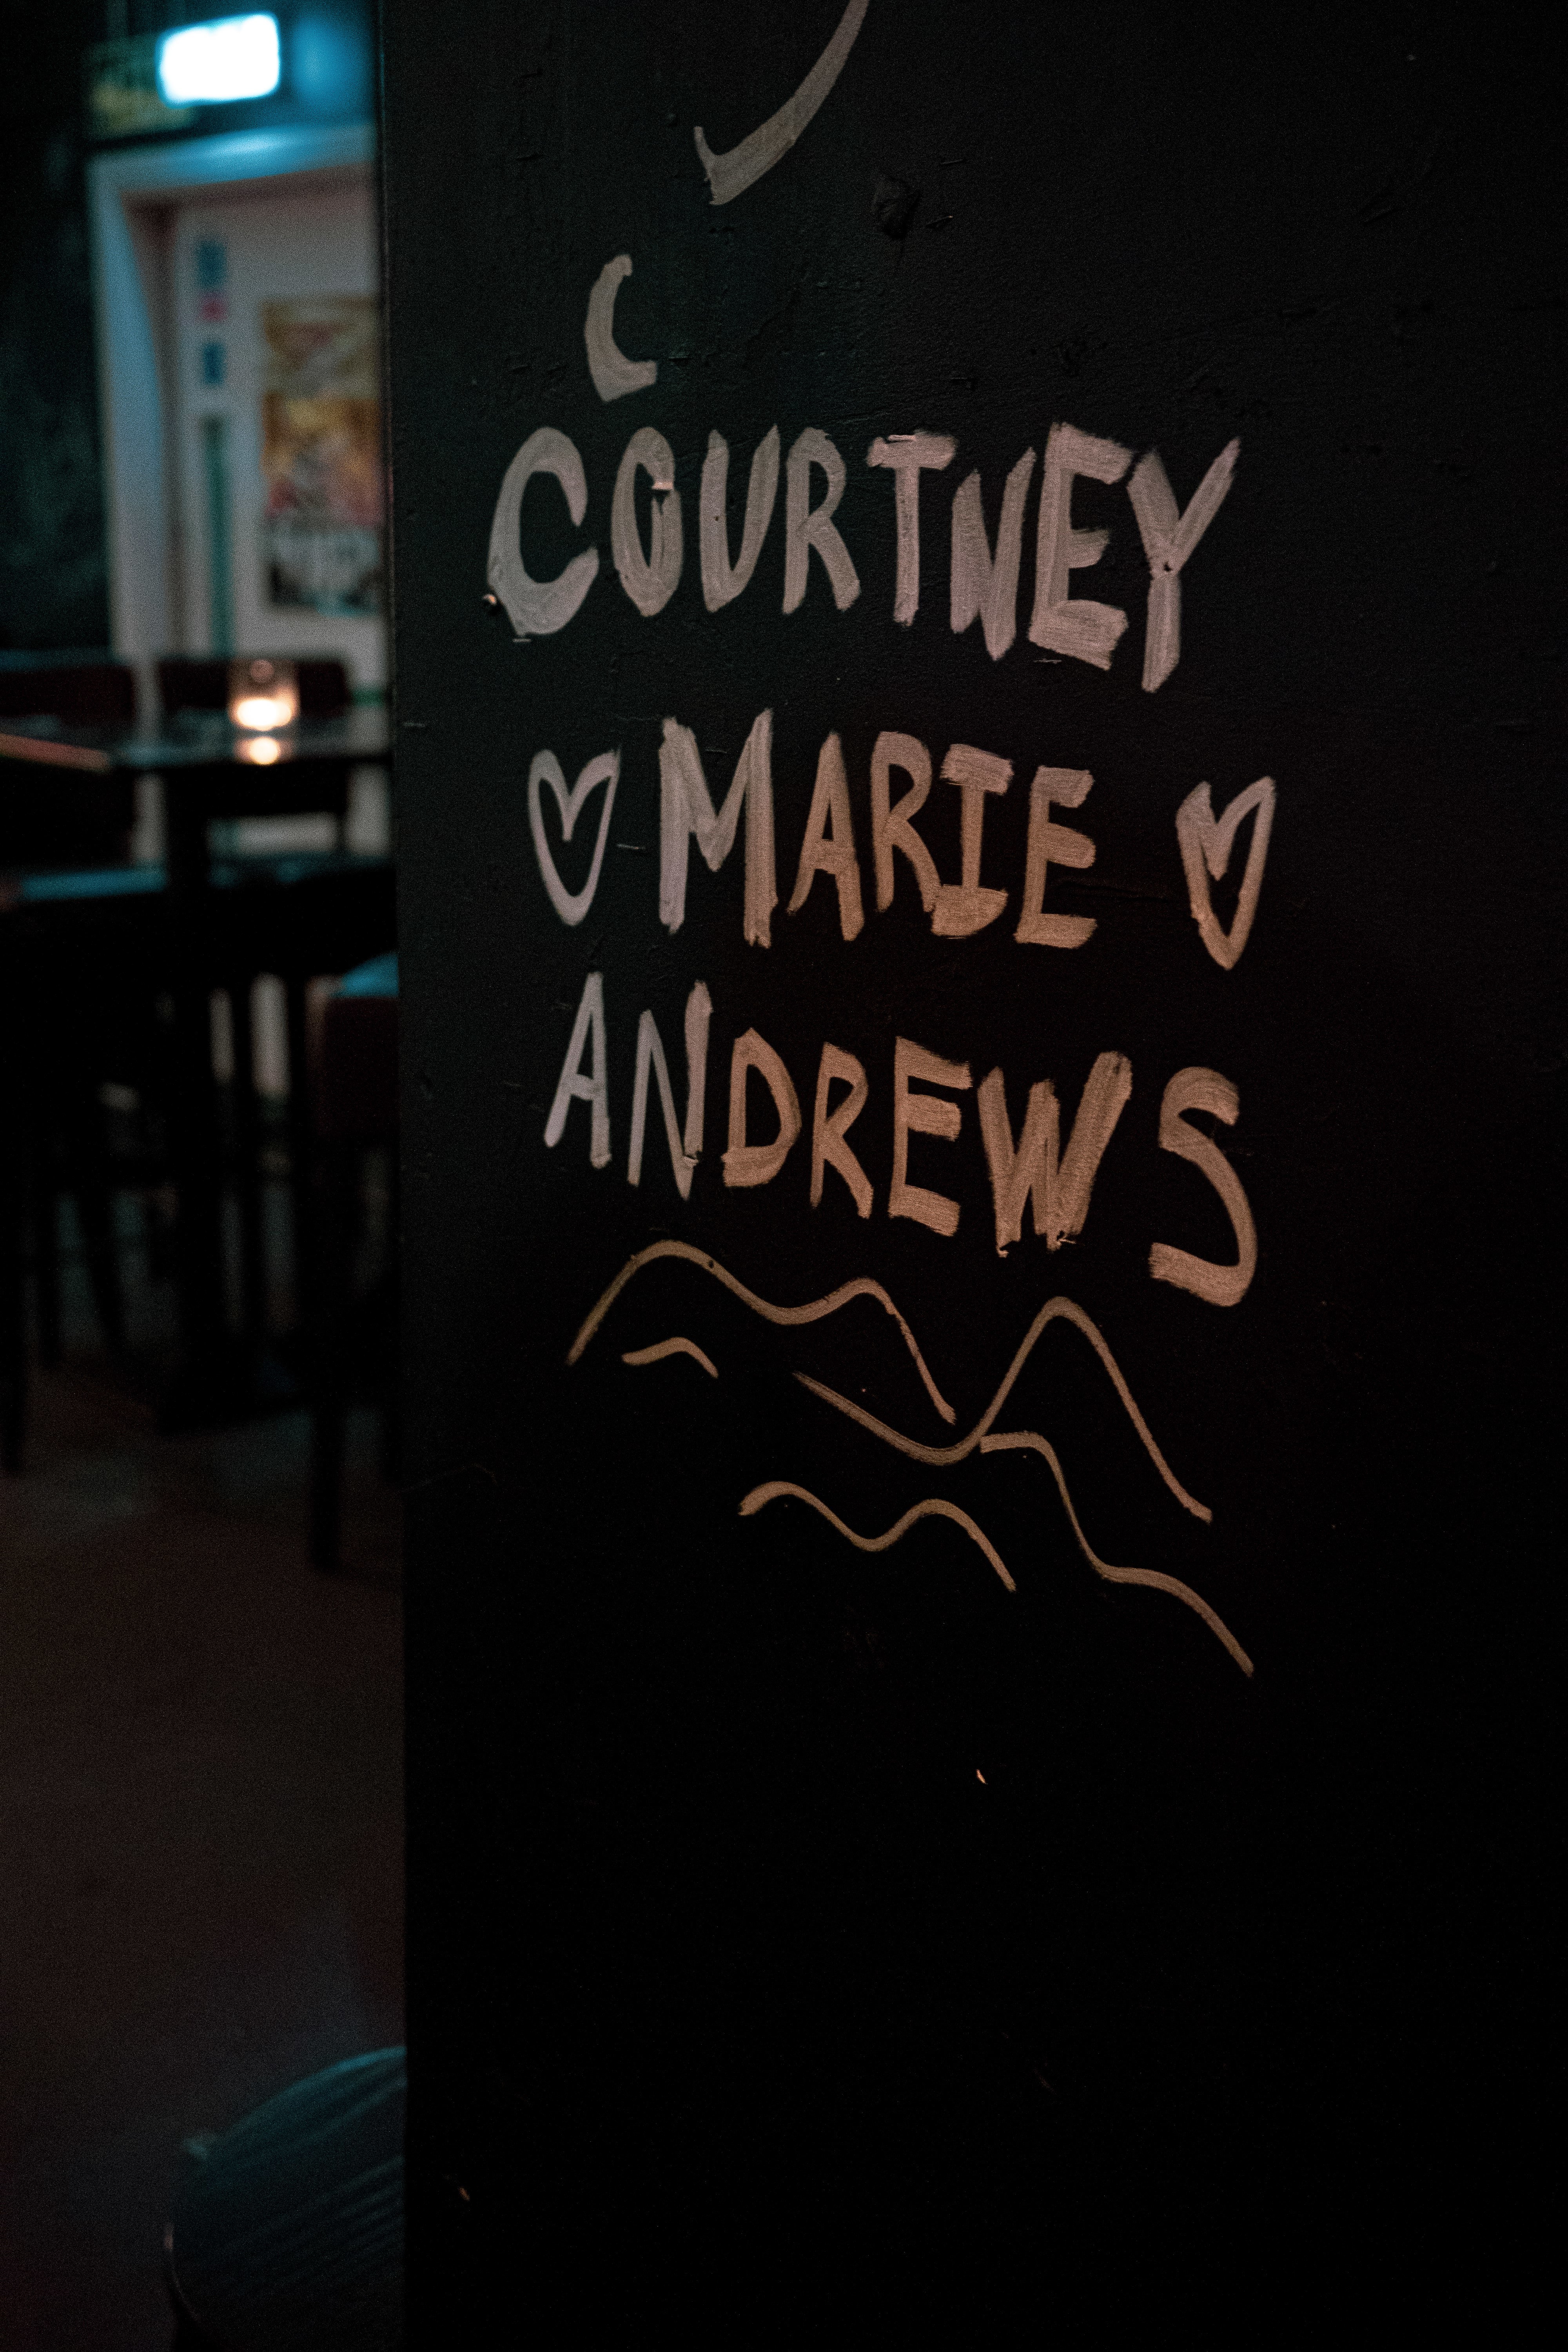 COURTNEY
MARIE
ANDREWS